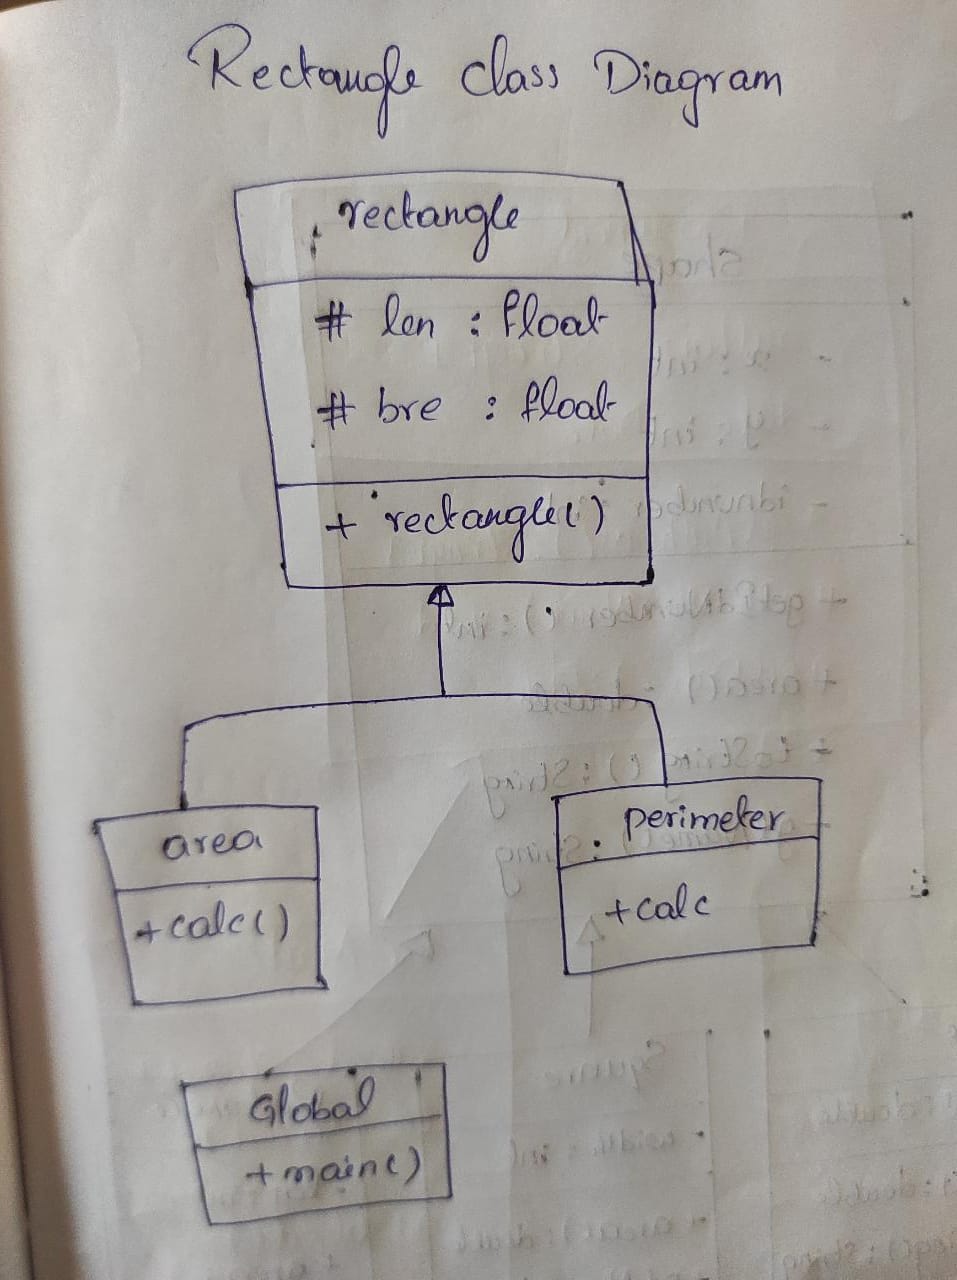 Rectangle class Diagram
rectangle
# len : float
# bre : float
+ rectangle()
area
+calc()
perimeter
+calc
Global
+main()